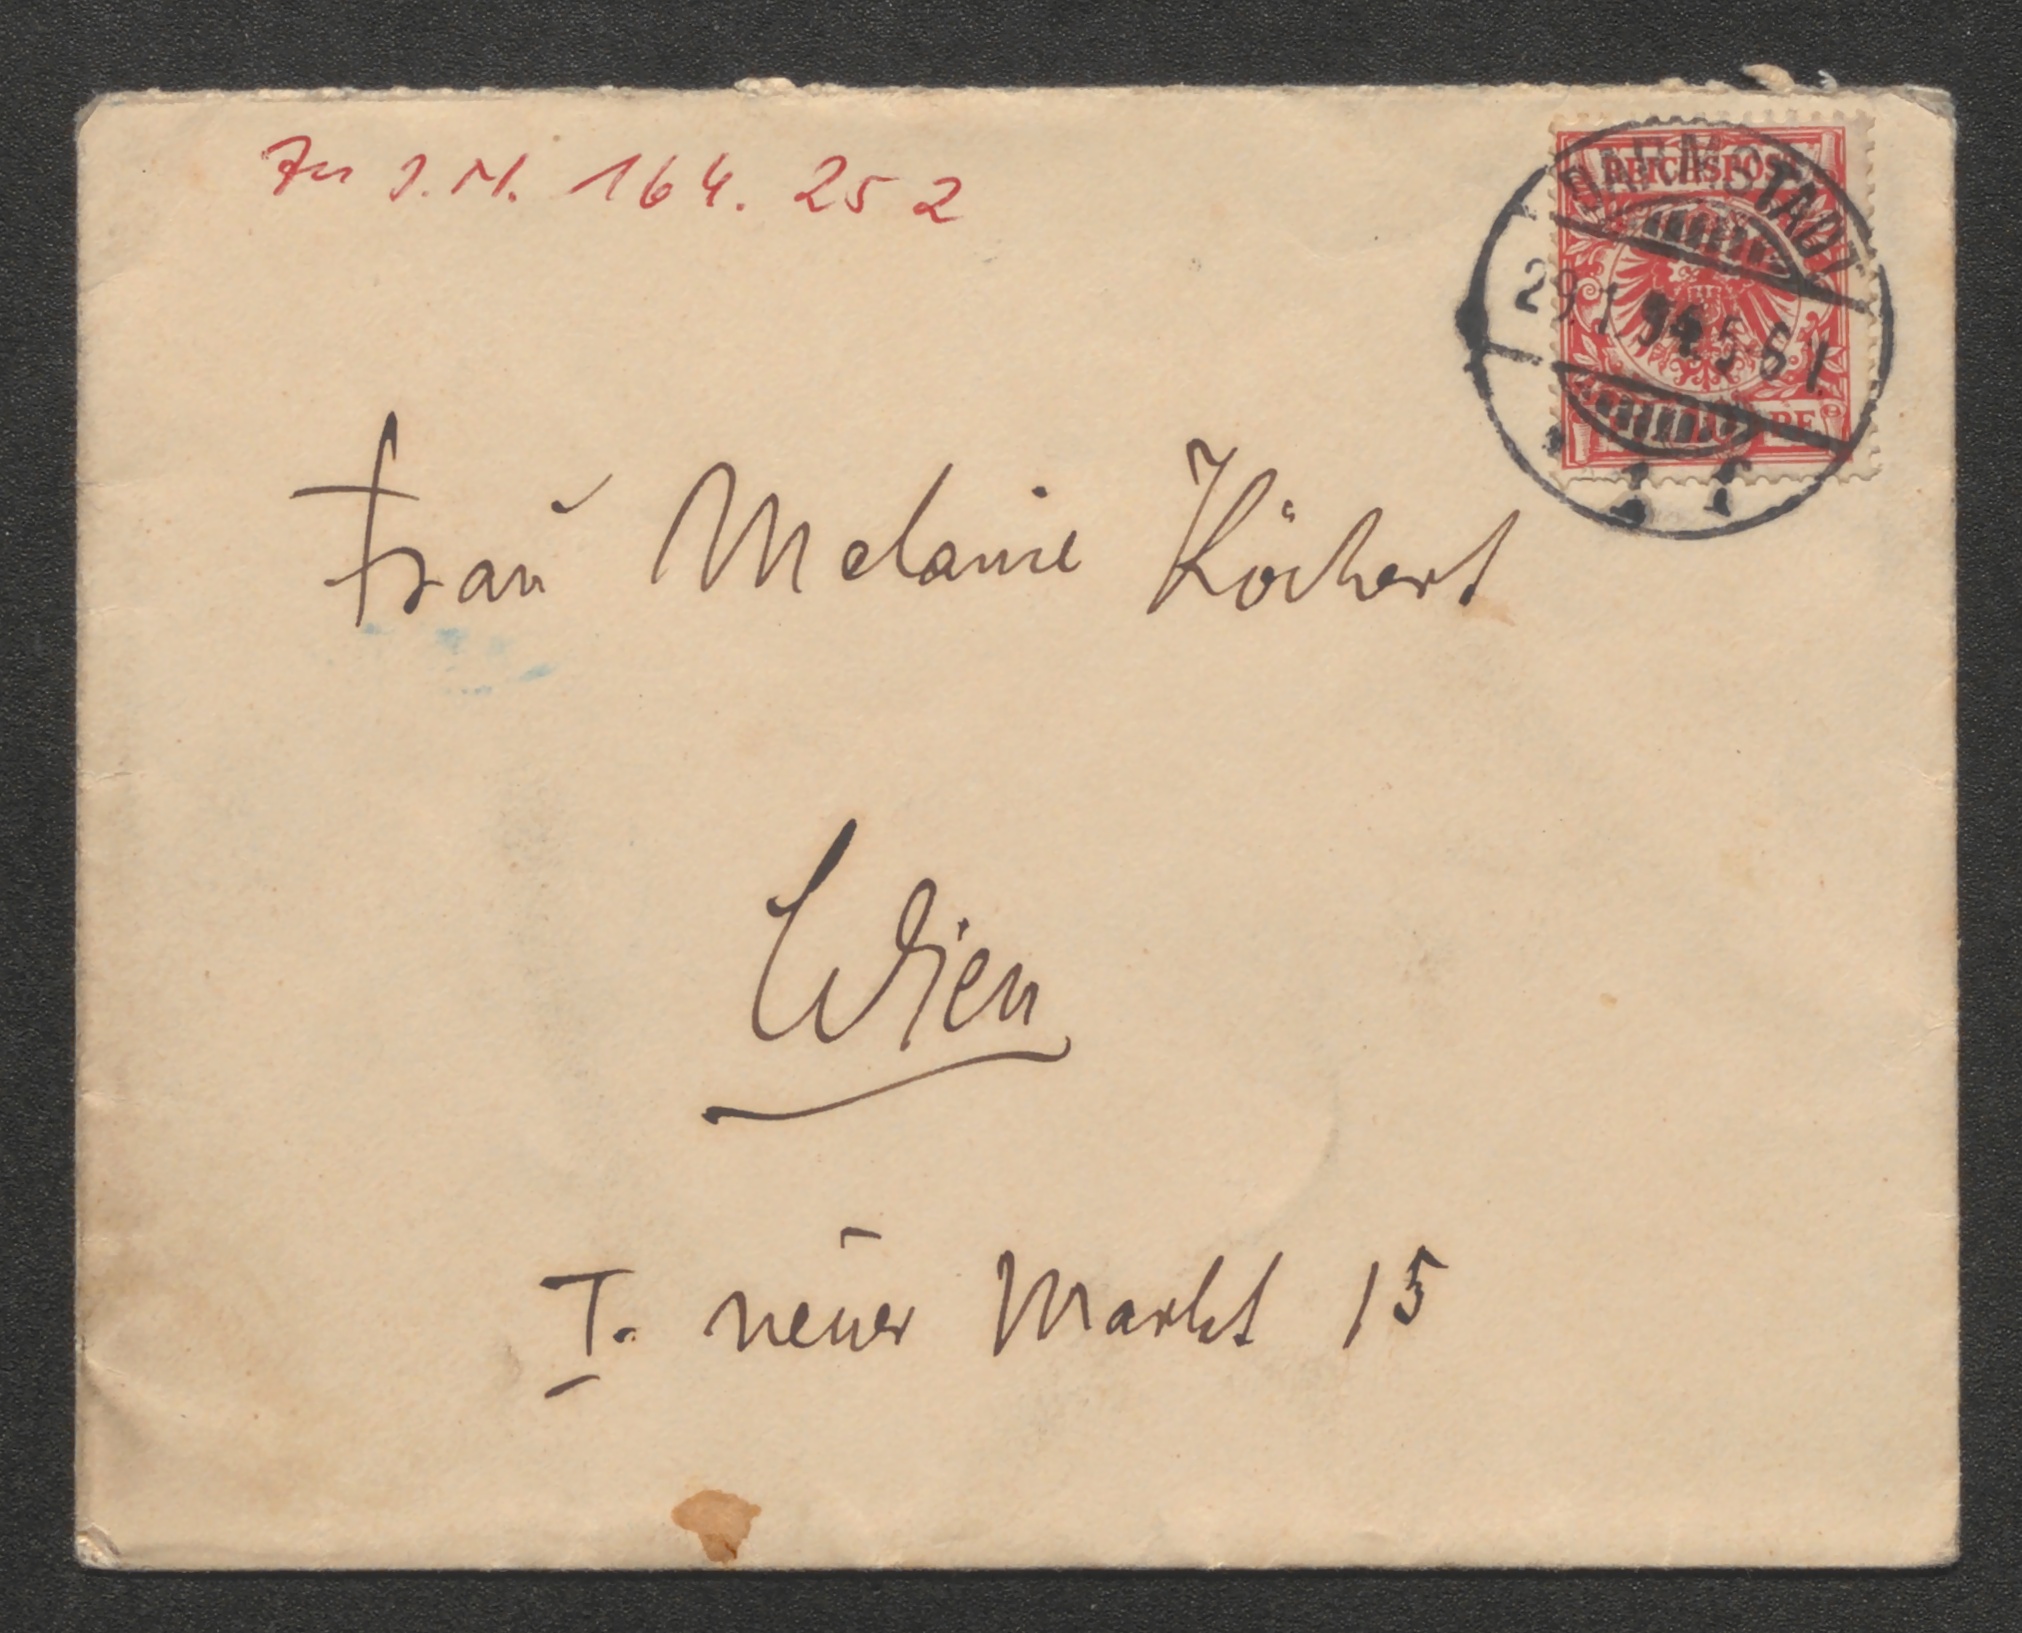 Zu I.N. 164.252
REICHSPOST
DARMSTADT
29.1.94.5-6N.
Frau Melanie Köchert
Wien
I. neuer Markt 15